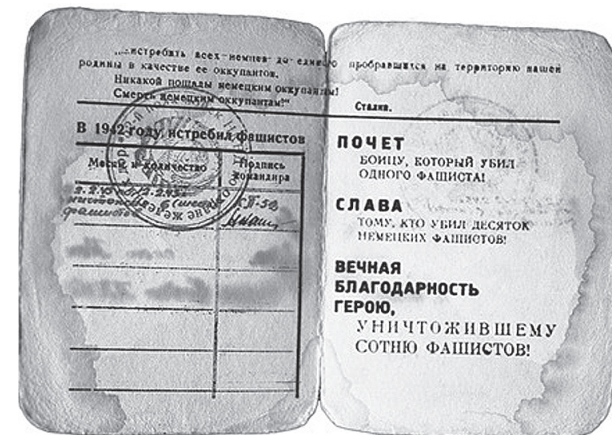 „...истребить всех немцев до единого пробравшихся на территорию нашей
родины в качестве ее оккупантов.
Никакой пощады немецким оккупантам!
Смерть немецким оккупантам!"
Сталин.
В 1942 году, истребил фашистов
Месяц и количество
Подпись
командира
фашистов
ПОЧЕТ
БОЙЦУ, КОТОРЫЙ УБИЛ
ОДНОГО ФАШИСТА!
СЛАВА
ТОМУ, КТО УБИЛ ДЕСЯТОК
НЕМЕЦКИХ ФАШИСТОВ!
ВЕЧНАЯ
БЛАГОДАРНОСТЬ
ГЕРОЮ,
УНИЧТОЖИВШЕМУ
СОТНЮ ФАШИСТОВ!